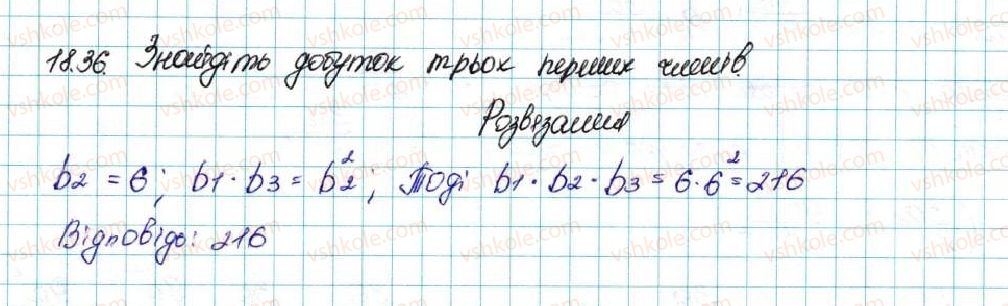 18.36. Знайдіть добуток трьох перших членів.
Розв'язання
b2 = 6; b1 · b3 = b2²; Тоді b1 · b2 · b3 = 6 · 6² = 216
Відповідь: 216